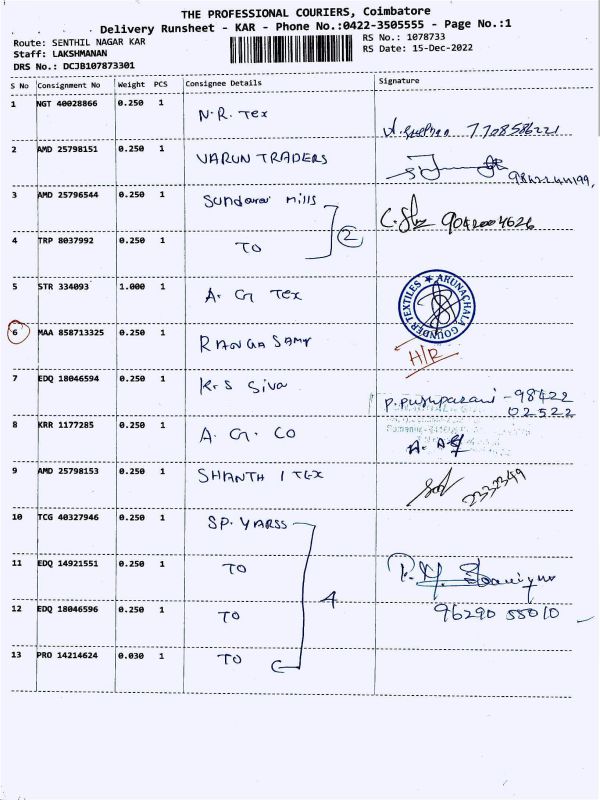 THE PROFESSIONAL COURIERS, Coimbatore
Delivery Runsheet - KAR - Phone No.:0422-3505555 - Page No.:1
Route: SENTHIL NAGAR KAR
Staff: LAKSHMANAN
DRS No.: DCJB107873301
RS No.: 1078733
RS Date: 15-Dec-2022
S No Consignment No Weight PCS Consignee Details Signature
1 NGT 40028866 0.250 1 N.R. Tex
7708586221
2 AMD 25798151 0.250 1 VARUN TRADERS
3 AMD 25796544 0.250 1 Sundarar mills
2
9042004626
4 TRP 8037992 0.250 1 TO
5 STR 334093 1.000 1 A. G Tex
ARUNACHALA GOUNDER TEXTILES
6 MAA 858713325 0.250 1 RANGA SAMY
H/R
7 EDQ 18046594 0.250 1 K.S Siva
P. Pushparani - 98422
02522
8 KRR 1177285 0.250 1 A. G. CO
9 AMD 25798153 0.250 1 SHANTHI TEX
2332349
10 TCG 40327946 0.250 1 SP. YARSS
11 EDQ 14921551 0.250 1 TO
4
12 EDQ 18046596 0.250 1 TO
96290 55010
13 PRO 14214624 0.030 1 TO